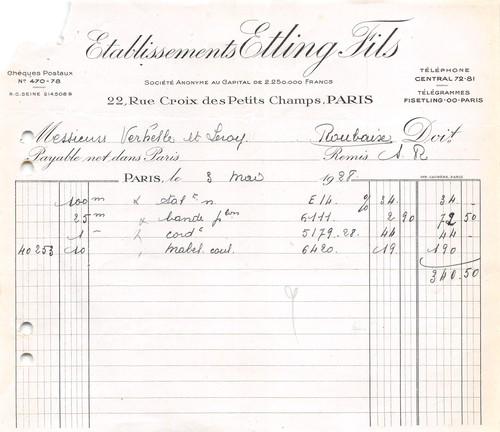 Etablissements Etling Fils
Chèques Postaux
No 470-78
R.C. SEINE 214.508 B
Société Anonyme au Capital de 2.250.000 Francs
TÉLÉPHONE
CENTRAL 72-81
TÉLÉGRAMMES
FISETLING-00-PARIS
22, Rue Croix des Petits Champs, PARIS
Messieurs et Leroy Roubaix Doit
Payable net dans Paris Remis A R
PARIS, le 3 Mai 1928
100 m n. E14. % 34. 34 -
25 m bande 6111. 2 90 72 50
1 - cord 5179.28. 44 44 -
40 253 10 6420. 19 190
340.50